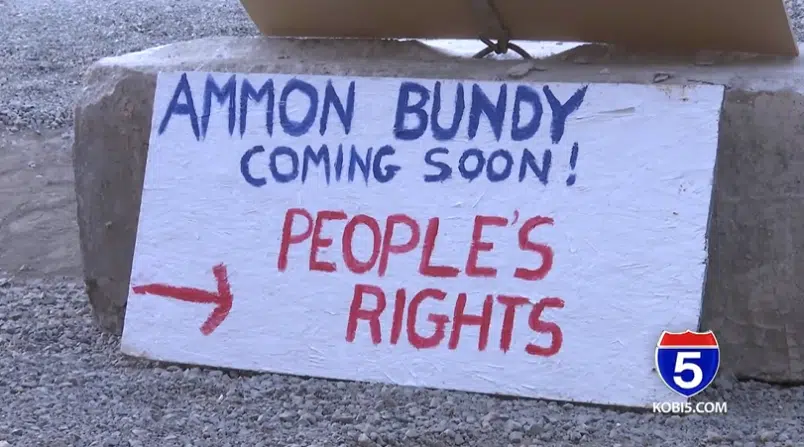 AMMON BUNDY
COMING SOON!
PEOPLE'S
RIGHTS
5
KOBI5.COM